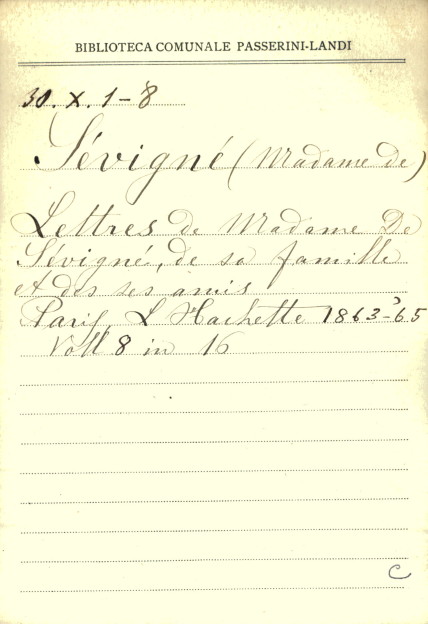 BIBLIOTECA COMUNALE PASSERINI-LANDI
30. X. 1-8
Sévigné (Madame de)
Lettres de Madame De
Sévigné, de sa famille
et des ses amis
Paris, L Hachette 1863-65
Voll 8 in 16
C